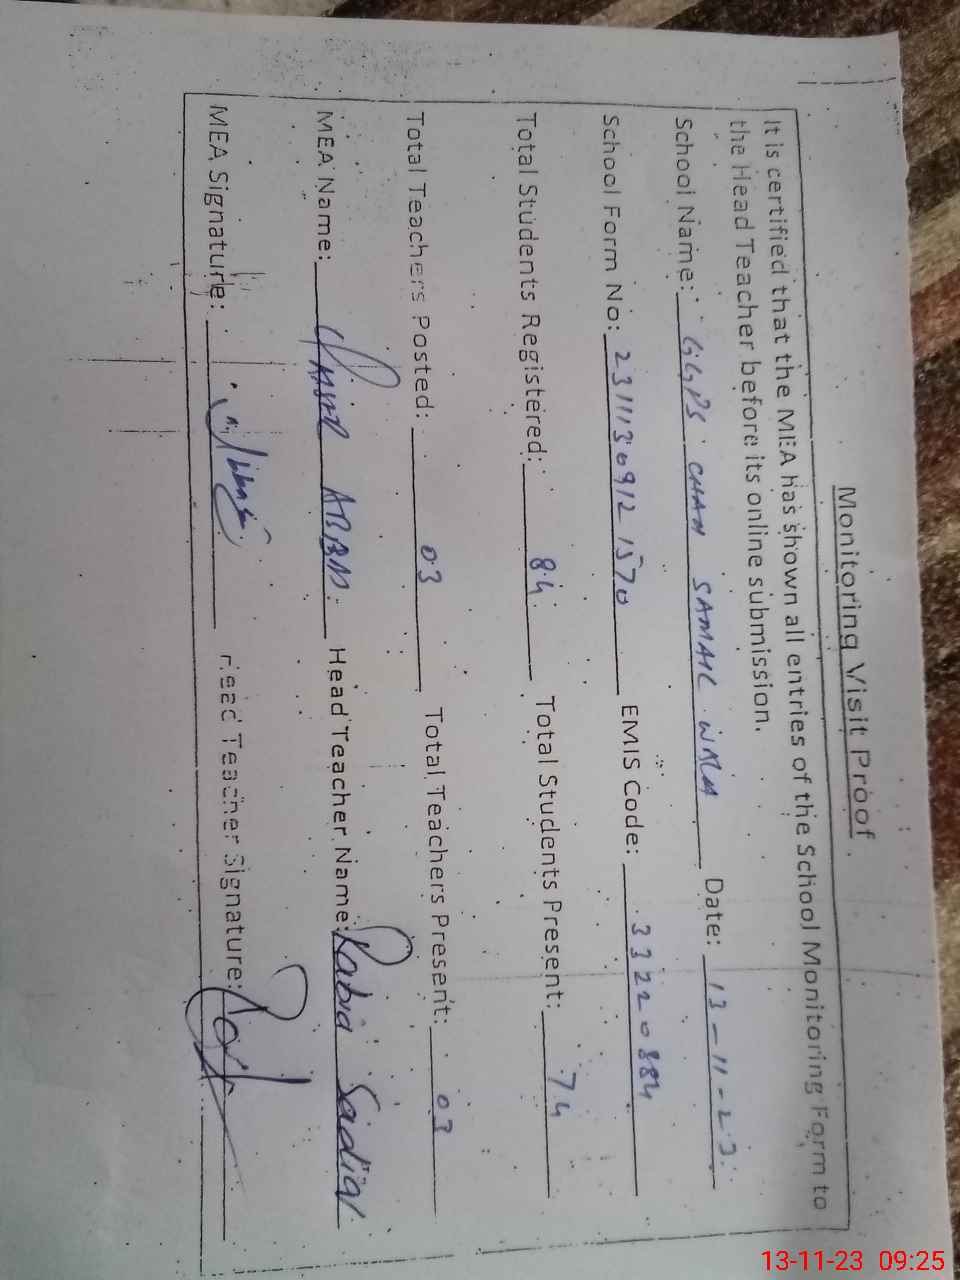 Monitoring Visit Proof
It is certified that the MEA has shown all entries of the School Monitoring Form to
the Head Teacher before its online submission.
School Name: GGPS CHAH SAMAIL WALA Date: 13-11-23
School Form No: 2311130912 1570 EMIS Code: 33220884
Total Students Registered: 84 Total Students Present: 74
Total Teachers Posted: 03 Total Teachers Present: 03
MEA Name: ABBAS Head Teacher Name: Rabia
MEA Signature: Head Teacher Signature:
13-11-23 09:25